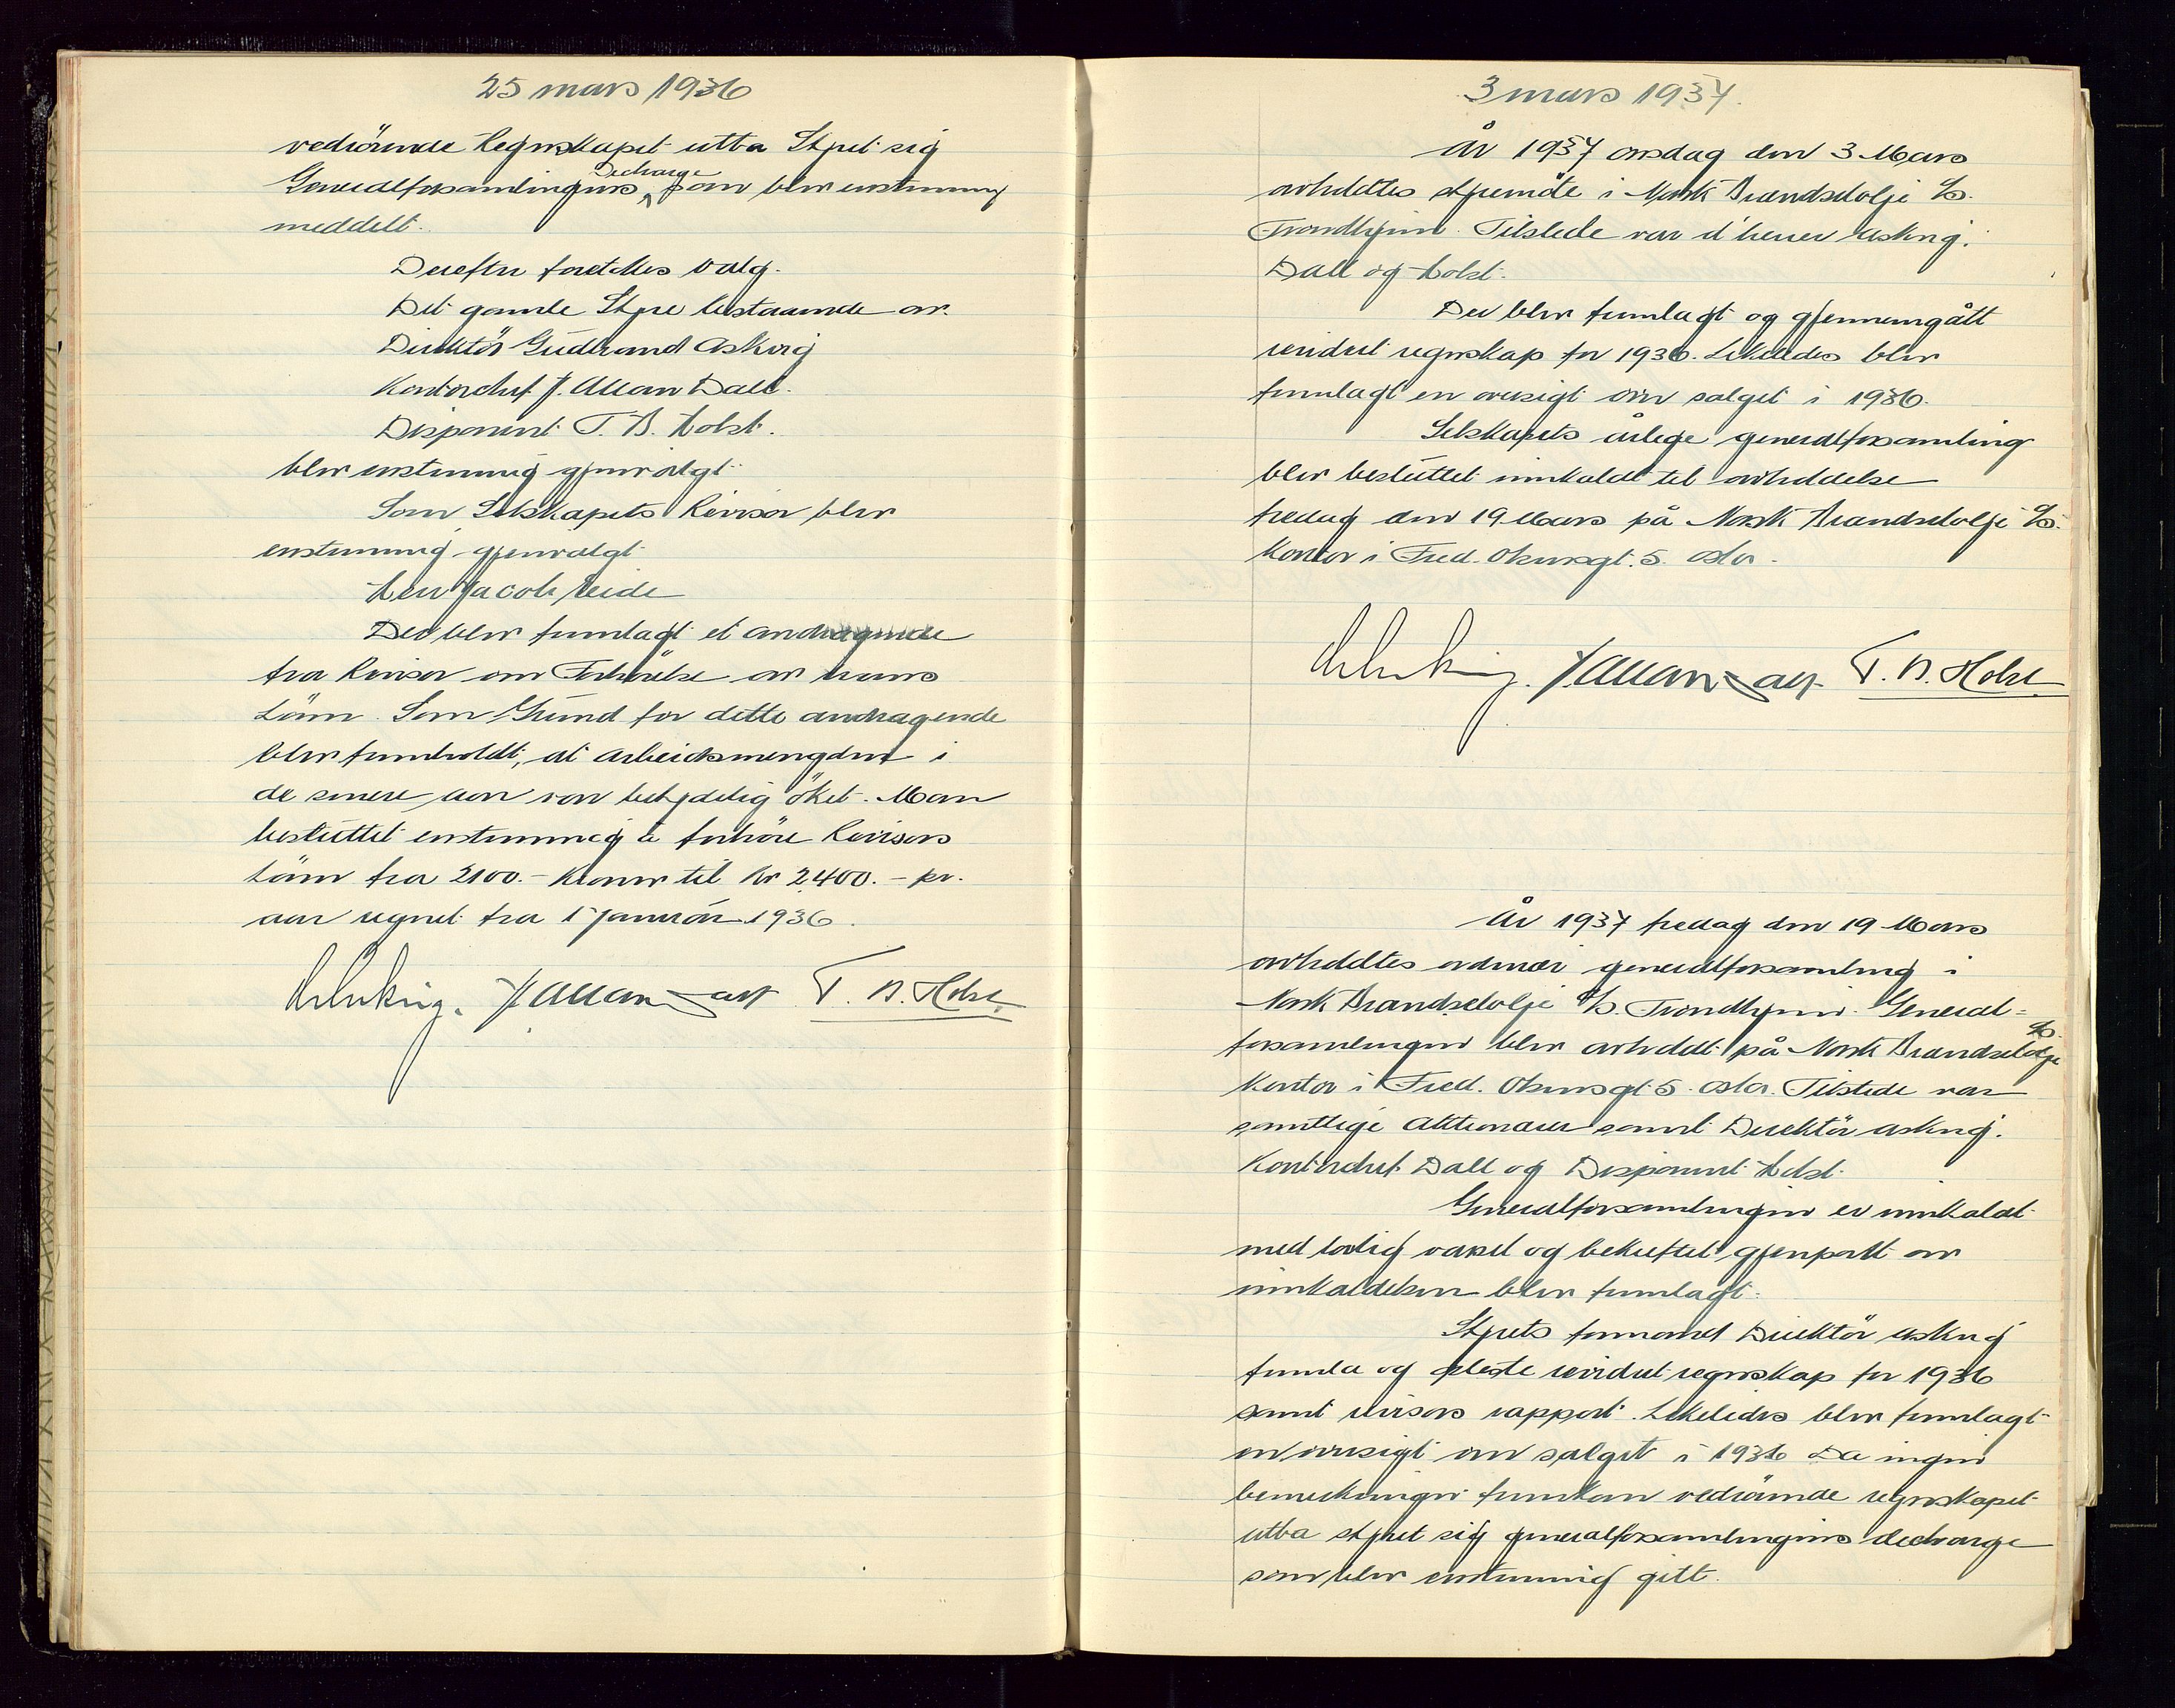 25 mars 1936
vedrörende Regnskapet utba Styret sig
Generalforsamlingens Decharge som blev enstemmig
meddelt.
Derefter foretokes valg.
Det gamle Styre bestaaende av.
Direktör Gudbrand Askvig
Kontorchef J. Allan Dall.
Disponent T. B. Holst.
blev enstemmig gjenvalgt.
Som Selskapets Revisor blev
enstemmig gjenvalgt
Herr Jacob Eeide
Der blev fremlagt et andragende
fra Revisor om Forhöielse av hans
Lönn. Som Grund for dette andragende
blev fremholdt, at arbeidsmengden i
de senere aar var betydelig öket. Man
besluttet enstemmig å forhöie Revisors
Lönn fra 2100.- Kroner til Kr 2400.- pr.
aar regnet fra 1 Januar 1936.
J Allan Dall T. B. Holst.
3 mars 1937.
År 1937 onsdag den 3 Mars
avholdtes styremöte i Norsk Brændselolje A/S.
Trondhjem. Tilstede var d'herrer Askvig.
Dall og Holst.
Der blev fremlagt og gjennemgått
revidert regnskap for 1936. Likeledes blev
fremlagt en oversigt over salget i 1936.
Selskapets årlige generalforsamling
blev besluttet innkaldt til avholdelse
fredag den 19 Mars på Norsk Brændselolje A/S.
Kontor i Fred. Olsensgt. 5. Oslo.
J. Allan Dall T. B. Holst
År 1937 fredag den 19 Mars
avholdtes ordinær generalforsamling i
Norsk Brændselolje A/S. Trondhjem. General-
forsamlingen blev avholdt på Norsk Brændselolje A/S.
Kontor i Fred. Olsensgt. 5. Oslo. Tilstede var
samtlige Aktionærer samt Direktör Askvig.
Kontorchef Dall og Disponent Holst.
Generalforsamlingen er innkaldt
med lovlig varsel og bekreftet gjenpart av
innkaldelsen blev fremlagt.
Styrets formand Direktör Askvig
fremla og opleste revidert regnskap for 1936
samt revisors rapport. Likeledes blev fremlagt
en oversigt over salget i 1936 Da ingen
bemerkninger fremkom vedrörende regnskapet
utba styret sig generalforsamlingens decharge
som blev enstemmig gitt.